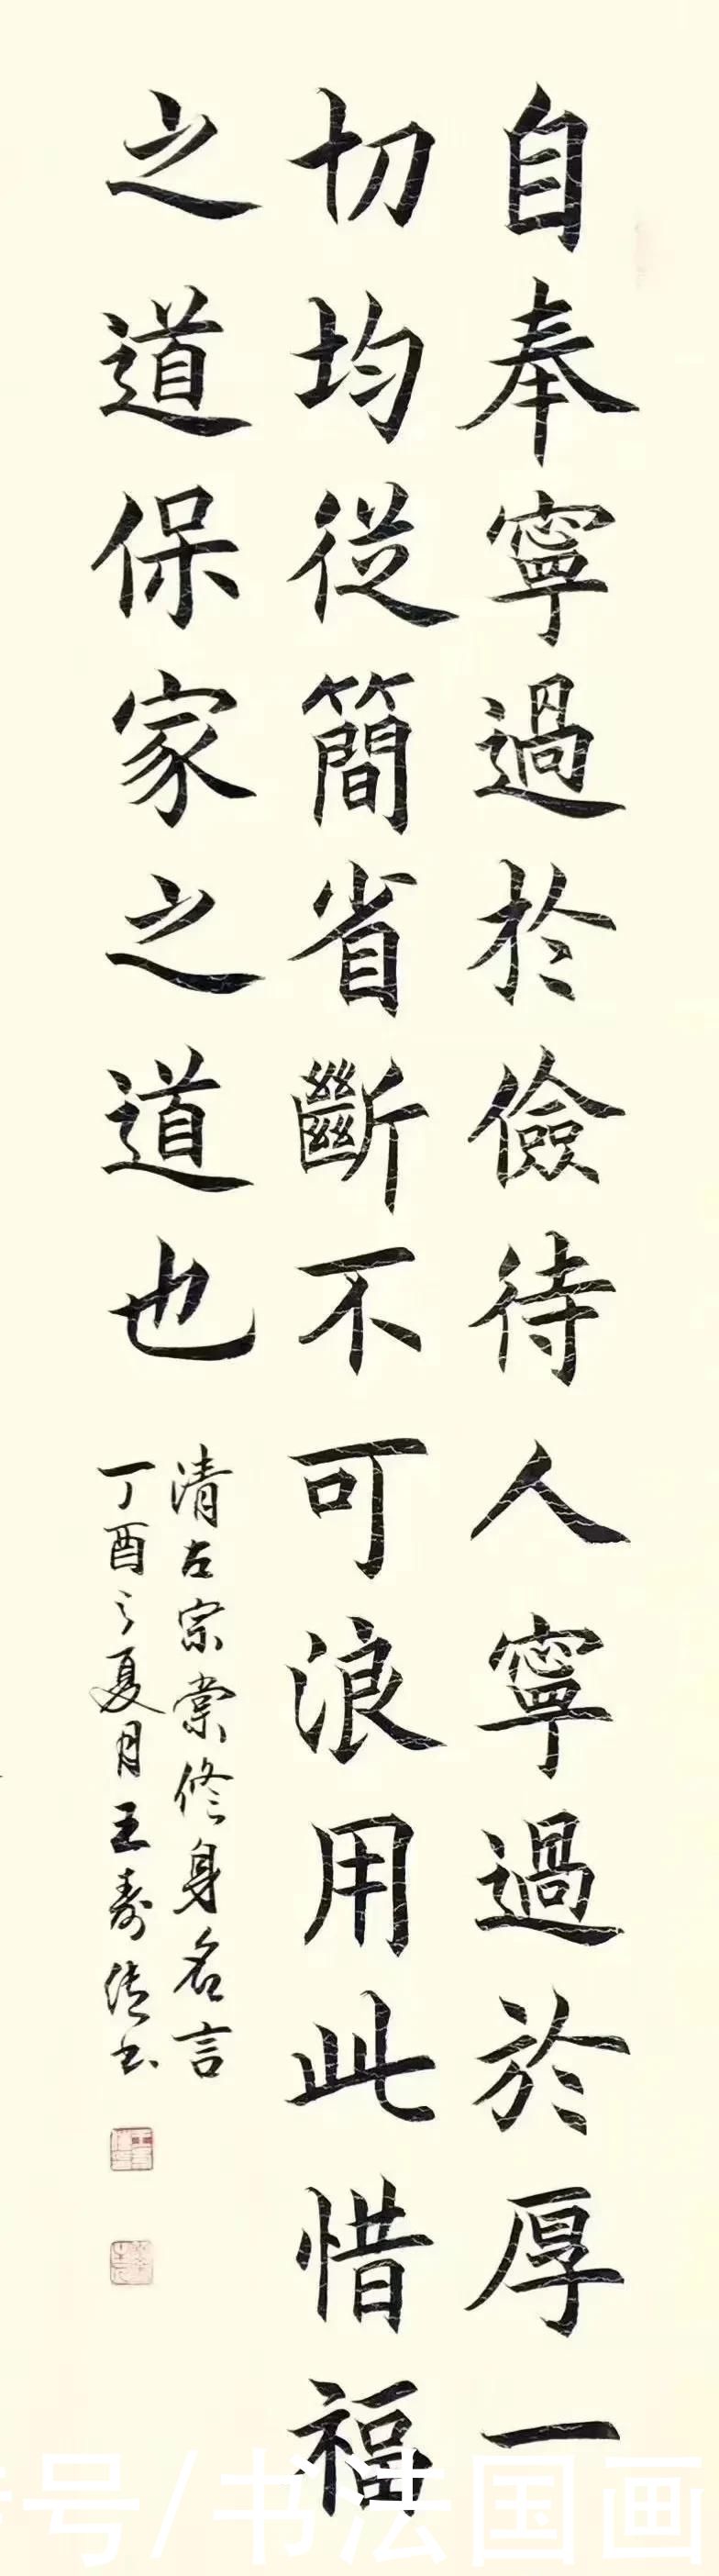 自奉寧過於儉待人寧過於厚一
切均從簡省斷不可浪用此惜福
之道保家之道也
清左宗棠修身名言
丁酉之夏月王壽仁书
号/书法国画